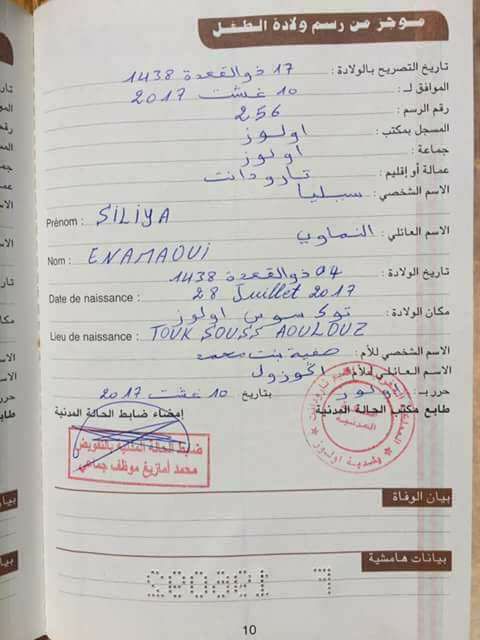 موجز من رسم ولادة الطفل
تاريخ التصريح بالولادة : 17 ذوالقعدة 1438
الموافق لـ : 10 غشت 2017
رقم الرسم : 256
المسجل بمكتب : اولوز
جماعة : اولوز
عمالة أو إقليم : تارودانت
الاسم الشخصي : سيليا
Prénom : SILIYA
الاسم العائلي : النماوي
Nom : ENAMAOUI
تاريخ الولادة : 04 ذوالقعدة 1438
Date de naissance : 28 Juillet 2017
مكان الولادة : توك سوس اولوز
Lieu de naissance : TOUK SOUSS AOULOUZ
الاسم الشخصي للأم : صفية بنت محمد
الاسم العائلي للأم : اكوزول
حرر بـ : اولوز بتاريخ 10 غشت 2017
طابع مكتب الحالة المدنية
إمضاء ضابط الحالة المدنية
ضابط الحالة المدنية بالتفويض
محمد أمازيغ موظف جماعي
بيان الوفاة
بيانات هامشية
10